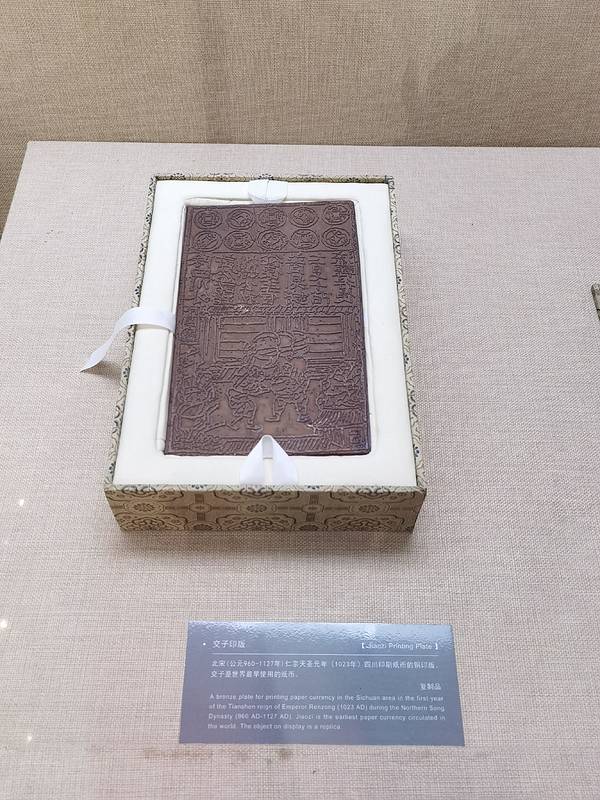 交子印版
【Jiaozi Printing Plate】
北宋(公元960-1127年)仁宗天圣元年（1023年）四川印刷纸币的铜印版。
交子是世界最早使用的纸币。
复制品
A bronze plate for printing paper currency in the Sichuan area in the first year
of the Tiansheng reign of Emperor Renzong (1023 AD) during the Northern Song
Dynasty (960 AD-1127 AD). Jiaozi is the earliest paper currency circulated in
the world. The object on display is a replica.